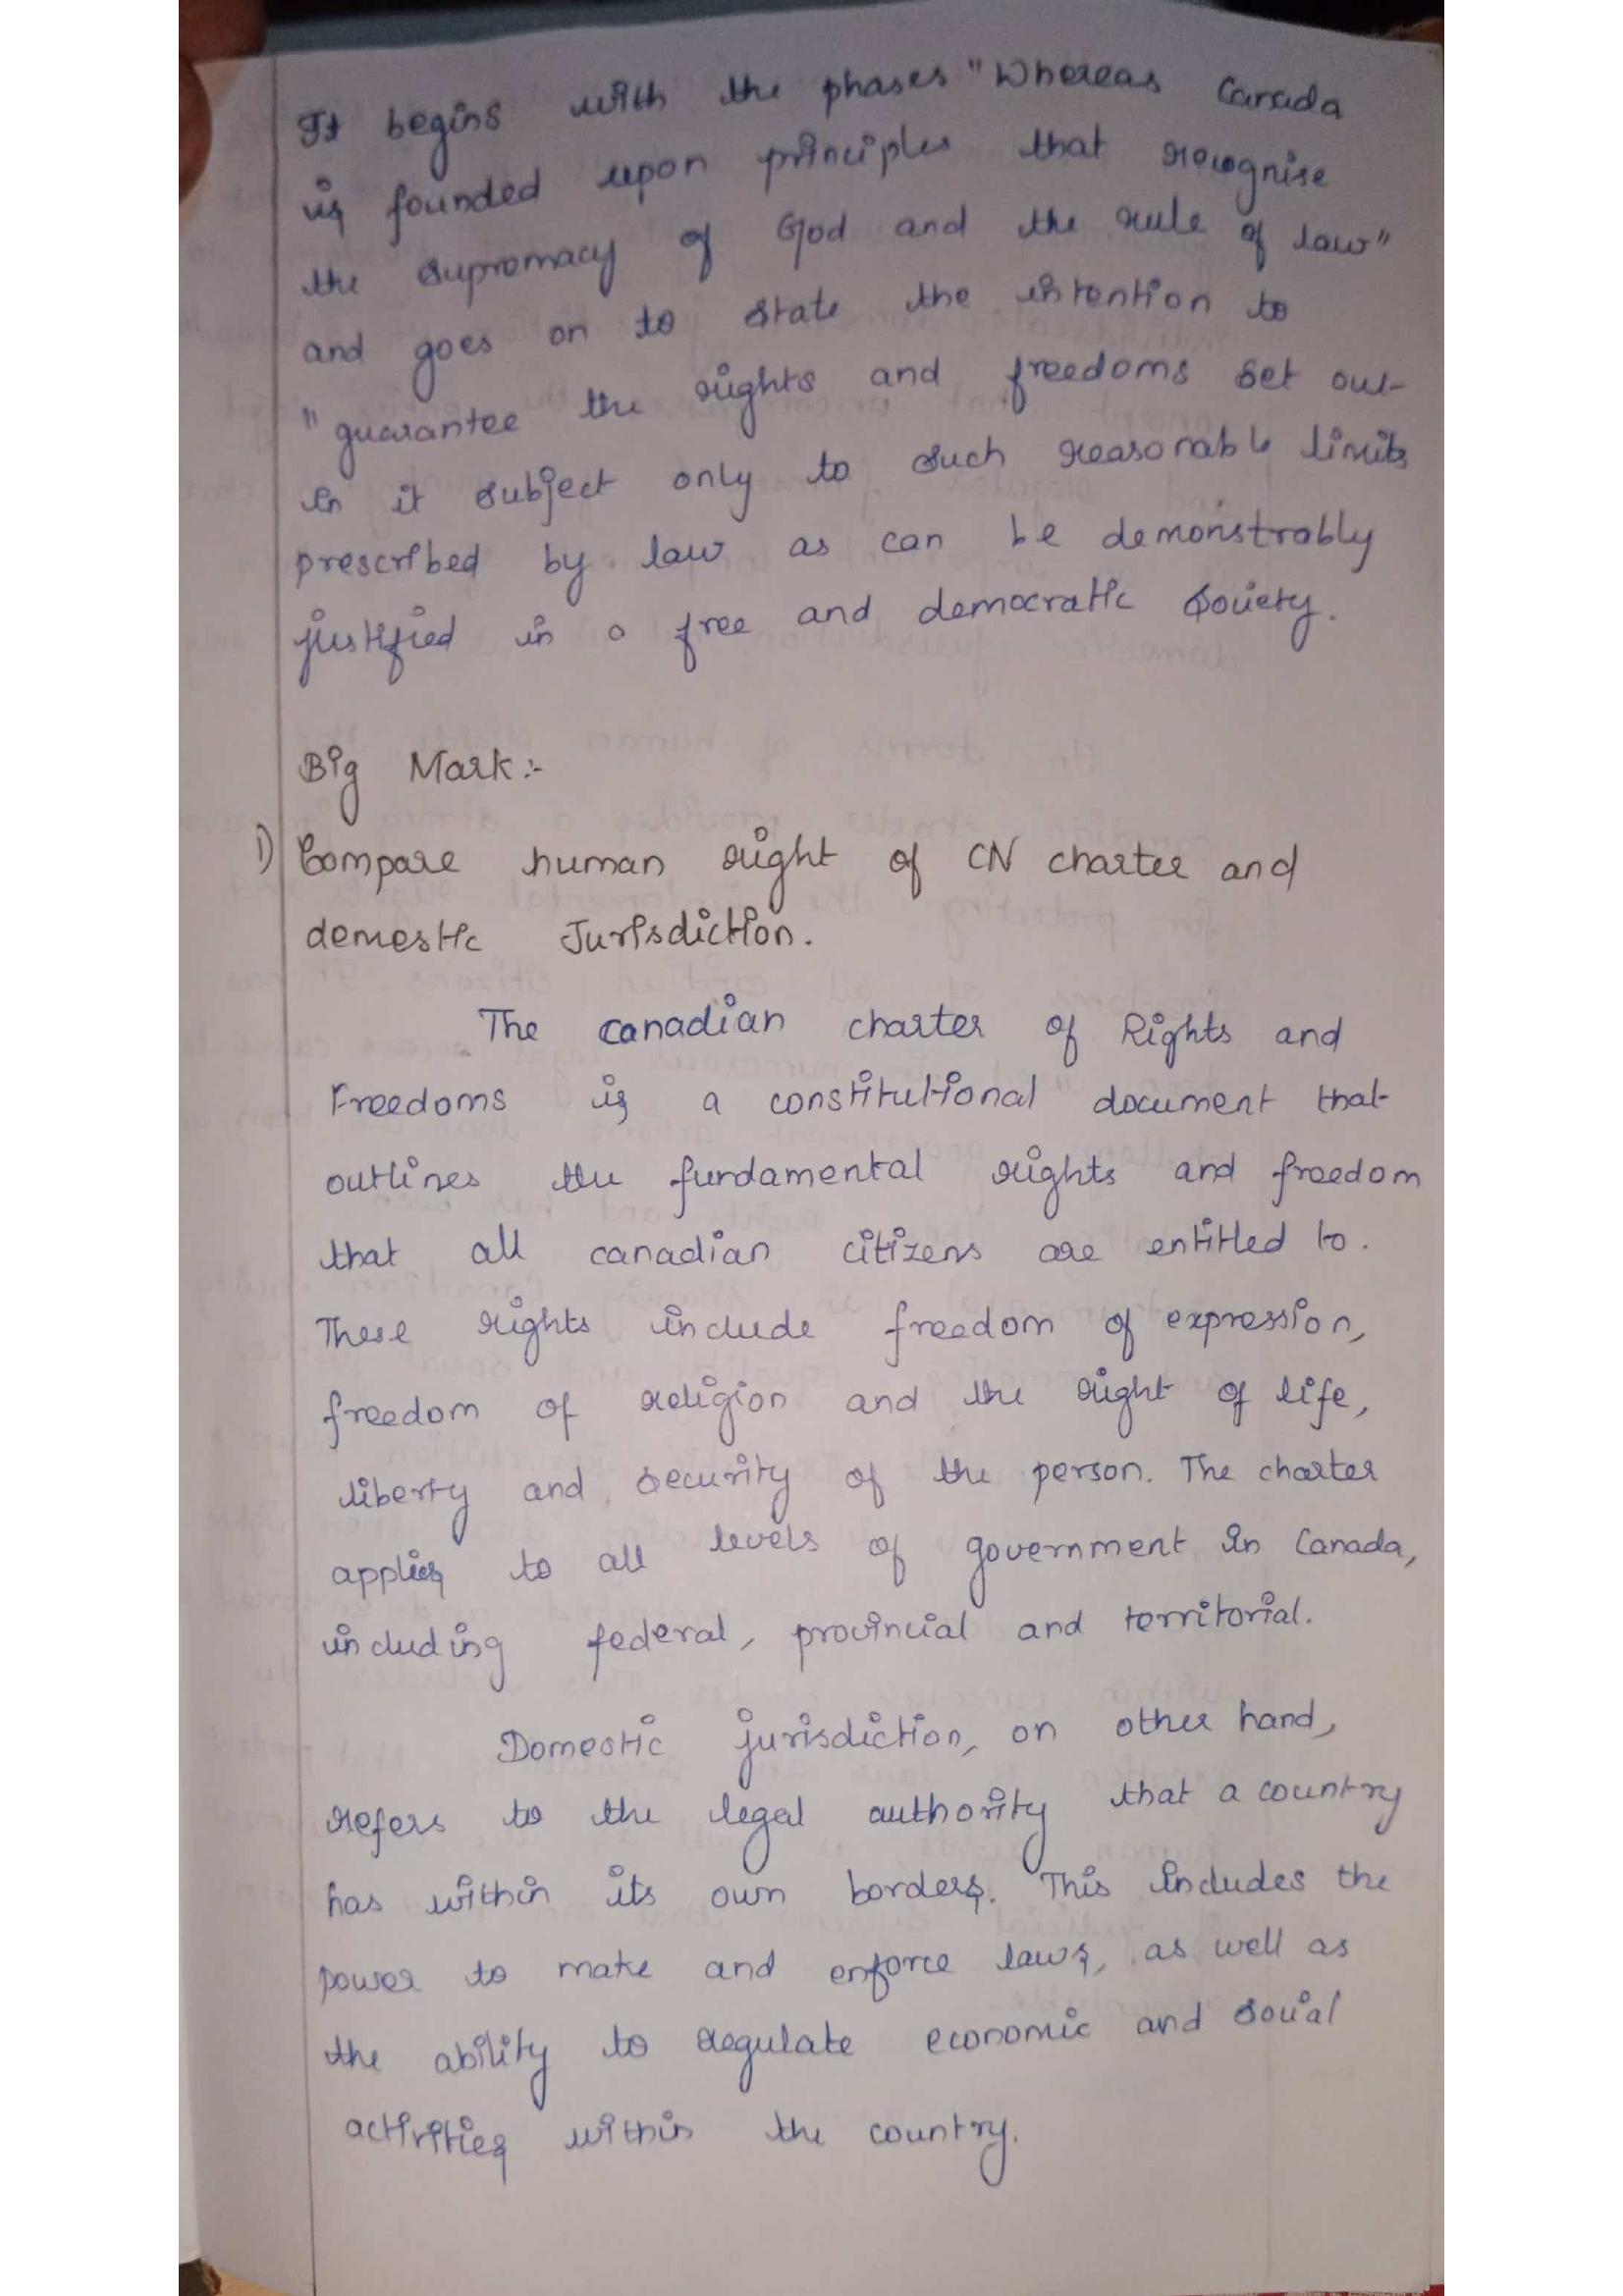 It begins with the phases "Whereas Canada
is founded upon principles that recognise
the supromacy of God and the rule of law"
and goes on to state the intention to
"guarantee the rights and freedoms set out
in it subject only to such reasonable limits
prescribed by law as can be demonstrably
justified in a free and democratic society.
Big Mark:-
1) Compare human right of CN charter and
demestic Jurisdiction.
The canadian charter of Rights and
Freedoms is a constitutional document that
outlines the fundamental rights and freedom
that all canadian citizens are entitled to.
These rights include freedom of expression,
freedom of religion and the right of life,
liberty and security of the person. The charter
applies to all levels of government in Canada,
including federal, provincial and territorial.
Domestic jurisdiction, on other hand,
refers to the legal authority that a country
has within its own borders. This includes the
power to make and enforce laws, as well as
the ability to regulate economic and social
activities within the country.